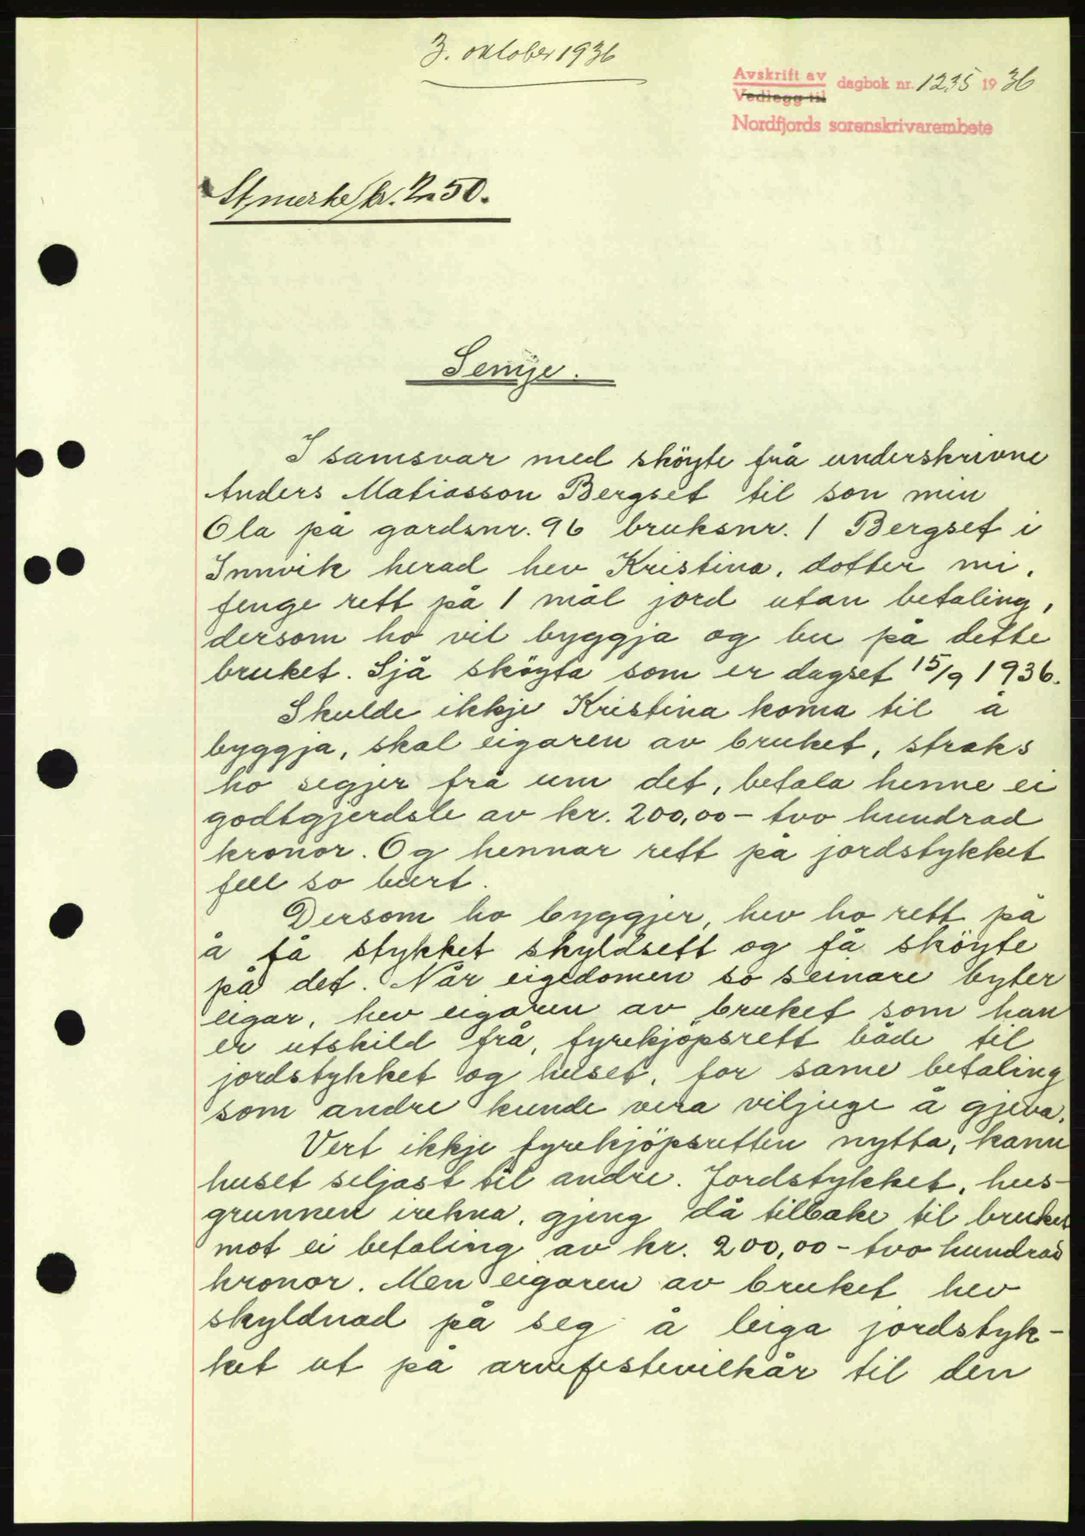 3. oktober 1936
Avskrift av
Vedlegg til
dagbok nr. 1235 1936
Nordfjords sorenskrivarembete
St,merke kr. 2.50.
Semje.
I samsvar med sköyte frå underskrivne
Anders Matiasson Bergset til son min
Ola på gardsnr. 96 bruksnr. 1 Bergset i
Innvik herad hev Kristina, dotter mi,
fenge rett på 1 mål jord utan betaling,
dersom ho vil byggja og bu på dette
bruket. Sjå sköyta som er dagset 15/9 1936.
Skulde ikkje Kristina koma til å
byggja, skal eigaren av bruket, straks
ho segjer frå um det, betala henne ei
godtgjerdsle av kr. 200,00 - tvo hundrad
kronor. Og hennar rett på jordstykket
fell so burt.
Dersom ho byggjer, hev ho rett på
å få stykket skyldsett og få sköyte
på det. Når eigedomen so seinare byter
eigar, hev eigaren av bruket som han
er utskild frå, fyrekjöpsrett både til
jordstykket og huset, for same betaling
som andre kunde vera viljuge å gjeva.
Vert ikkje fyrekjöpsretten nytta, kann
huset seljast til andre. Jordstykket, hus-
grunnen irekna, gjeng då tilbake til bruket
mot ei betaling av kr. 200,00 - tvo hundrad
kronor. Men eigaren av bruket hev
skyldnad på seg å leiga jordstyk-
ket ut på arvefestevilkår til den